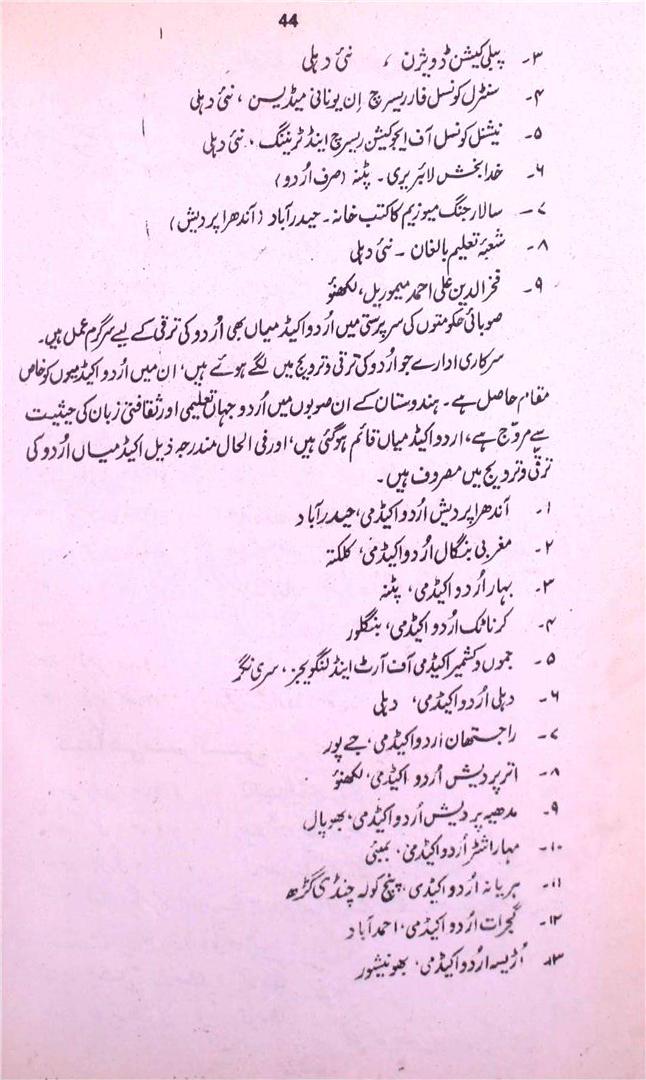 44
۳۔ پبلی کیشن ڈویژن ، نئی دہلی
۴۔ سنٹرل کونسل فار ریسرچ اِن یونانی میڈیسن ، نئی دہلی
۵۔ نیشنل کونسل آف ایجوکیشن ریسرچ اینڈ ٹریننگ ، نئی دہلی
۶۔ خدا بخش لائبریری ۔ پٹنہ (صرف اُردو)
۷۔ سالار جنگ میوزیم کا کتب خانہ ۔ حیدرآباد (آندھرا پردیش)
۸۔ شعبۂ تعلیم بالغان ۔ نئی دہلی
۹۔ فخرالدین علی احمد میموریل، لکھنؤ
صوبائی حکومتوں کی سرپرستی میں اُردو اکیڈمیاں بھی اُردو کی ترقی کے لیے سرگرم عمل ہیں۔
سرکاری ادارے جو اُردو کی ترقی و ترویج میں لگے ہوئے ہیں، ان میں اُردو اکیڈمیوں کو خاص
مقام حاصل ہے۔ ہندوستان کے ان صوبوں میں اُردو جہاں تعلیمی اور ثقافتی زبان کی حیثیت
سے مروّج ہے، اردو اکیڈمیاں قائم ہوگئی ہیں، اور فی الحال مندرجہ ذیل اکیڈمیاں اُردو کی
ترقی و ترویج میں مصروف ہیں۔
۱۔ آندھرا پردیش اُردو اکیڈمی، حیدرآباد
۲۔ مغربی بنگال اُردو اکیڈمی، کلکتہ
۳۔ بہار اُردو اکیڈمی، پٹنہ
۴۔ کرناٹک اُردو اکیڈمی، بنگلور
۵۔ جموں و کشمیر اکیڈمی آف آرٹ اینڈ لنگویجز ، سری نگر
۶۔ دہلی اُردو اکیڈمی، دہلی
۷۔ راجستھان اُردو اکیڈمی، جے پور
۸۔ اتر پردیش اُردو اکیڈمی، لکھنؤ
۹۔ مدھیہ پردیش اُردو اکیڈمی، بھوپال
۱۰۔ مہاراشٹر اُردو اکیڈمی، بمبئی
۱۱۔ ہریانہ اُردو اکیڈمی، پنچ کولہ چنڈی گڑھ
۱۲۔ گجرات اُردو اکیڈمی، احمد آباد
۱۳۔ اُڑیسہ اُردو اکیڈمی، بھونیشور